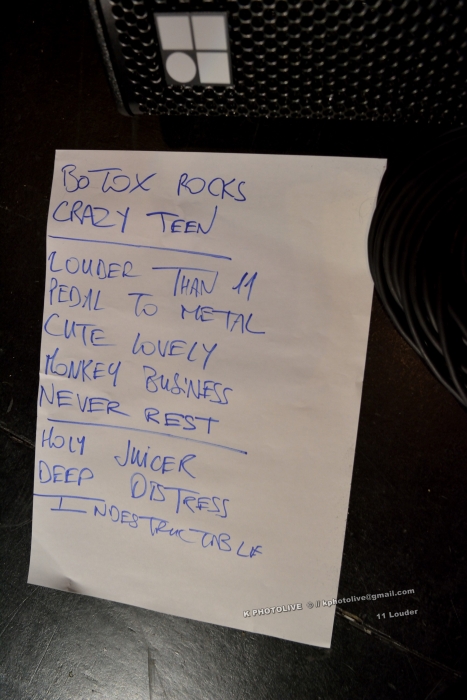 BOTOX ROCKS
CRAZY TEEN
LOUDER THAN 11
PEDAL TO METAL
CUTE LOVELY
MONKEY BUSINESS
NEVER REST
HOLY JUICER
DEEP DISTRESS
INDESTRUCTABLE
K PHOTOLIVE © // kphotolive@gmail.com
11 Louder